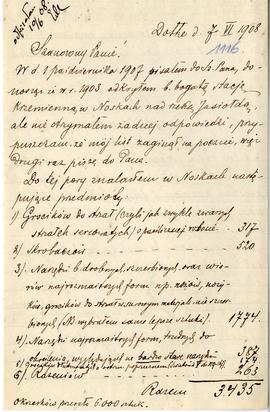 odpisałem
10/6 08
Dołhe d. 7 VI 1908.
1116
Szanowny Panie.
W d. 1 października 1907 pisałem do Sz. Pana, do-
nosząc iż w r. 1903 odkryłem b. bogatą stację
krzemienną w Noskach nad rzeką Jasiołdą,
ale nie otrzymałem żadnej odpowiedzi, przy-
puszczam, że mój list zaginął na poczcie, więc
drugi raz piszę do Pana.
Do tej pory znalazłem w Noskach nastę-
pujące przedmioty:
1) Grocików do strzał (czyli jak zwykle zwanych
strzałek sercowatych) 317
2) Skrobaczów 520
3) Narzędzi b. drobnych, oraz wió-
rów najrozmaitszej formy n.p. noży, noży-
ków, grocików do strzał 1774
4) Narzędzi najrozmaitszej formy, trudnych do
określenia, wyglądających na bardzo stare narzędzi 387
5) 174
6) Rdzeniów 263
Razem 3435
okruchów przeszło 6.000 sztuk.